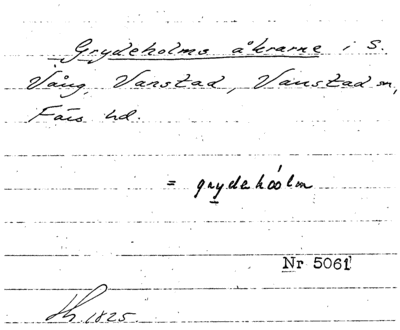 Grydeholms åkrarne i S.
Vång, Vanstad, Vanstad sn,
Färs hd.
= grydehóolm
Nr 5061
Th. 1825.